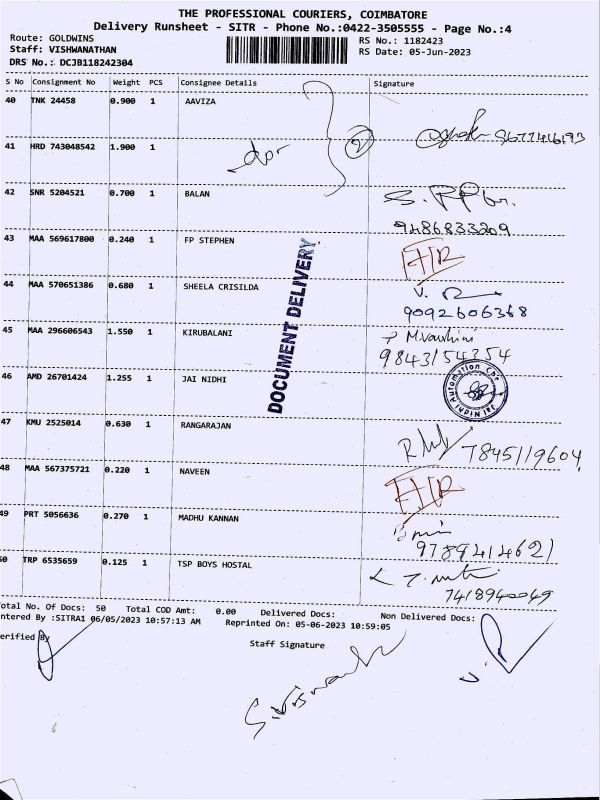 THE PROFESSIONAL COURIERS, COIMBATORE
Delivery Runsheet - SITR - Phone No.:0422-3505555 - Page No.:4
Route: GOLDWINS
Staff: VISHWANATHAN
DRS No.: DCJB118242304
RS No.: 1182423
RS Date: 05-Jun-2023
S No Consignment No Weight PCS Consignee Details Signature
40 TNK 24458 0.900 1 AAVIZA
41 HRD 743048542 1.900 1 9677416193
42 SNR 5204521 0.700 1 BALAN
9486833209
43 MAA 569617800 0.240 1 FP STEPHEN
44 MAA 570651386 0.680 1 SHEELA CRISILDA
9092606368
45 MAA 296606543 1.550 1 KIRUBALANI
9843154354
46 AMD 26701424 1.255 1 JAI NIDHI
Jai Nidhi Automation
DOCUMENT DELIVERY
47 KMU 2525014 0.630 1 RANGARAJAN
7845119604
48 MAA 567375721 0.220 1 NAVEEN
49 PRT 5056636 0.270 1 MADHU KANNAN
9789414621
50 TRP 6535659 0.125 1 TSP BOYS HOSTAL
7418940049
otal No. Of Docs: 50 Total COD Amt: 0.00 Delivered Docs: Non Delivered Docs:
ntered By :SITRA1 06/05/2023 10:57:13 AM Reprinted On: 05-06-2023 10:59:05
erified By
Staff Signature